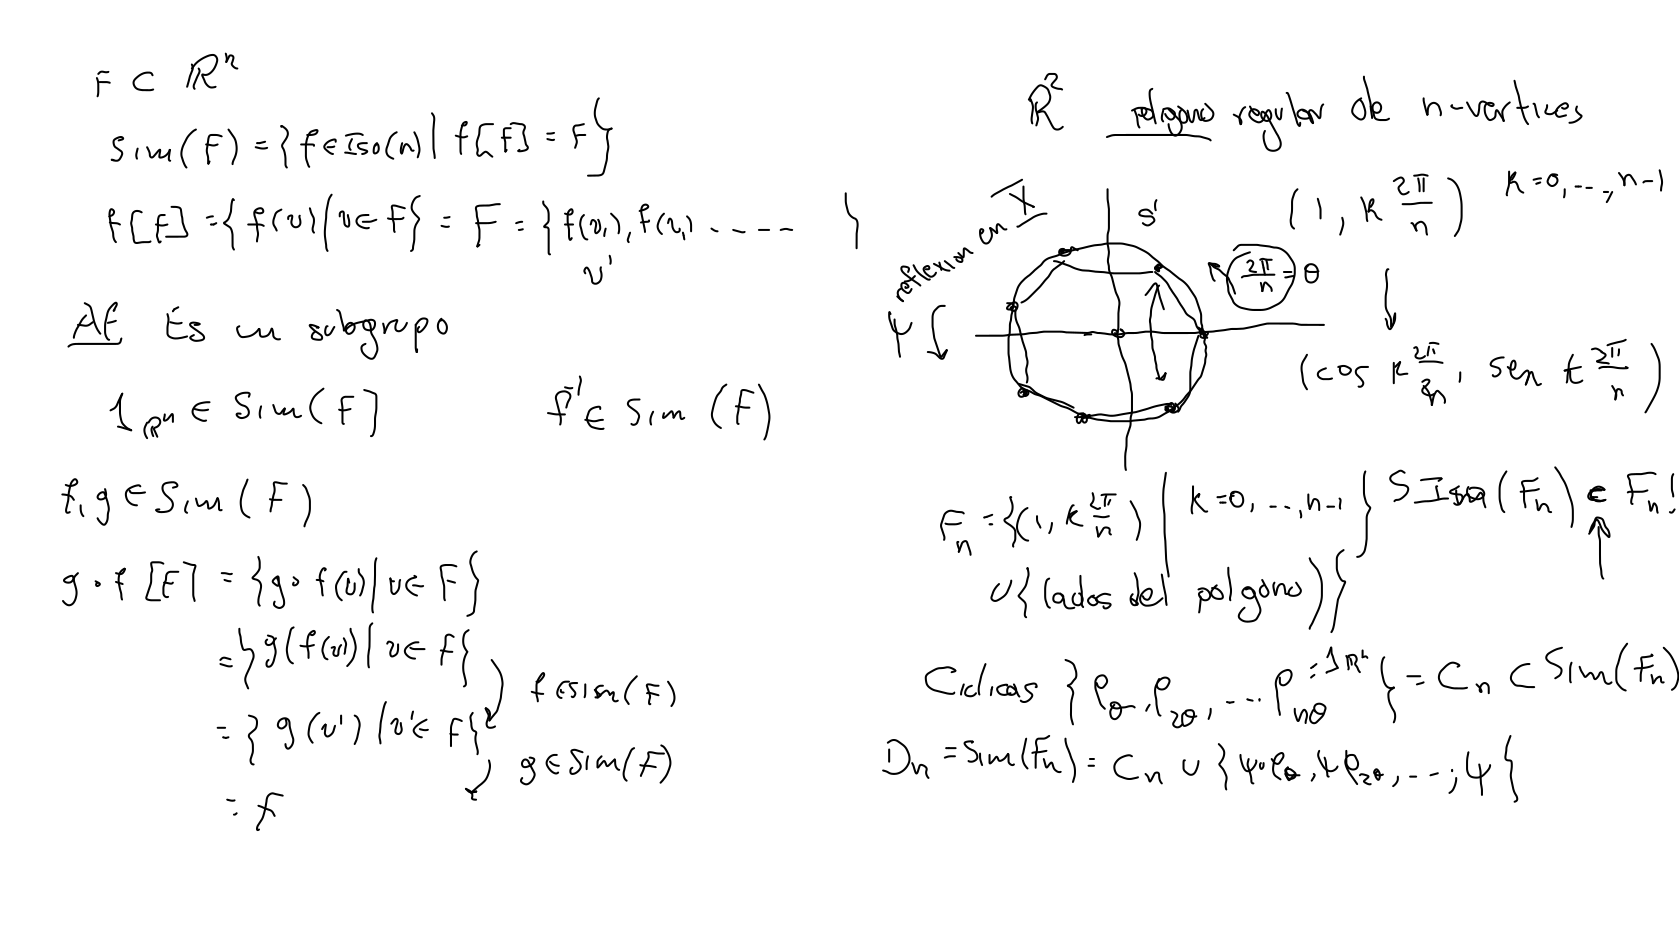 F ⊂ ℝⁿ
Sim(F) = {f ∈ Iso(n) | f[F] = F}
f[F] = {f(v) | v ∈ F} = F = {f(v₁), f(v₂) ----- }
v'
Af Es un subgrupo
1_ℝⁿ ∈ Sim(F) f⁻¹ ∈ Sim(F)
f, g ∈ Sim(F)
g∘f[F] = {g∘f(v) | v ∈ F}
= {g(f(v)) | v ∈ F}
f ∈ Sim(F)
= {g(v') | v' ∈ F}
g ∈ Sim(F)
= F
ℝ² polígono regular de n-vertices
(1, k 2π/n) k = 0, ..., n-1
reflexion en X
S¹
2π/n = θ
ψ
(cos k 2π/n, sen k 2π/n)
F_n = {(1, k 2π/n) | k = 0, ..., n-1} S Isa(F_n) ⊂ F_n!
∪ {lados del polígono)}
Ciclicas {ρ_θ, ρ_2θ, ... ρ_nθ = 1_ℝⁿ} = C_n ⊂ Sim(F_n)
D_n = Sim(F_n) = C_n ∪ {ψ∘ρ_θ, ψρ_2θ, ...; ψ}